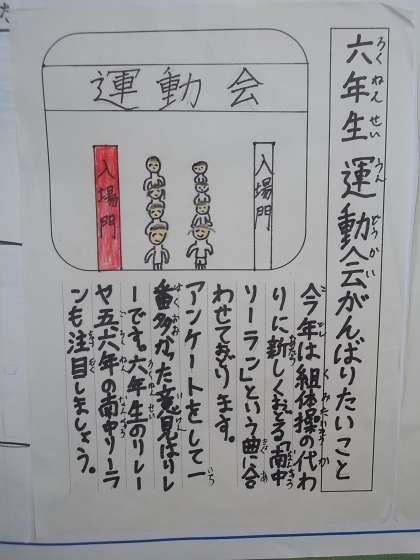 六年生 運動会がんばりたいこと
ろくねんせい うんどうかい
運動会
入場門
入場門
今年は組体操の代わ
りに新しくおどる「南中
ソーラン」という曲に合
わせておどります。
アンケートをして一
番多かった意見はリレ
ーです。六年生のリレー
や五六年の南中ソーラ
ンも注目しましょう。